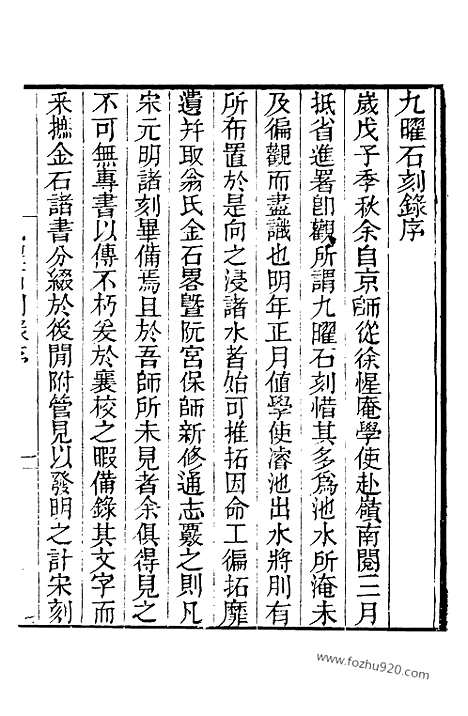 九曜石刻錄序
歲戊子季秋余自京師從徐惺庵學使赴嶺南閱三月
抵省進署卽觀所謂九曜石刻惜其多爲池水所淹未
及徧觀而盡識也明年正月値學使濬池出水將別有
所布置於是向之浸諸水者始可推拓因命工徧拓靡
遺幷取翁氏金石畧暨阮宮保師新修通志覈之則凡
宋元明諸刻畢備焉且於吾師所未見者余俱得見之
不可無專書以傳不朽爰於襄校之暇備錄其文字而
采摭金石諸書分綴於後閒附管見以發明之計宋刻
www.fozhu920.com